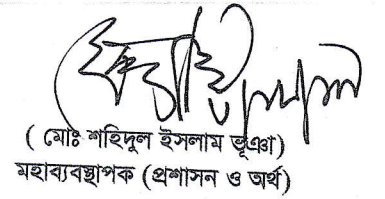 ( মোঃ শহিদুল ইসলাম ভূঞা)
মহাব্যবস্থাপক (প্রশাসন ও অর্থ)